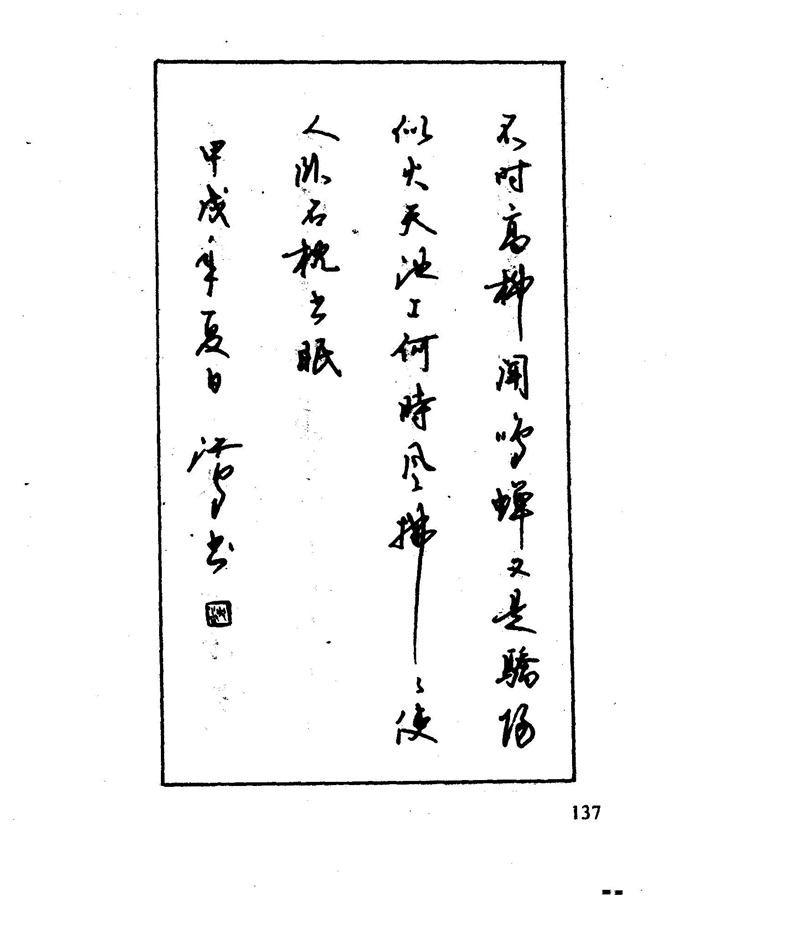 不时高柳闻鸣蝉又是驕阳
似火天池上何時风拂ミ使
人卧石枕书眠
甲戌年夏日 书
137